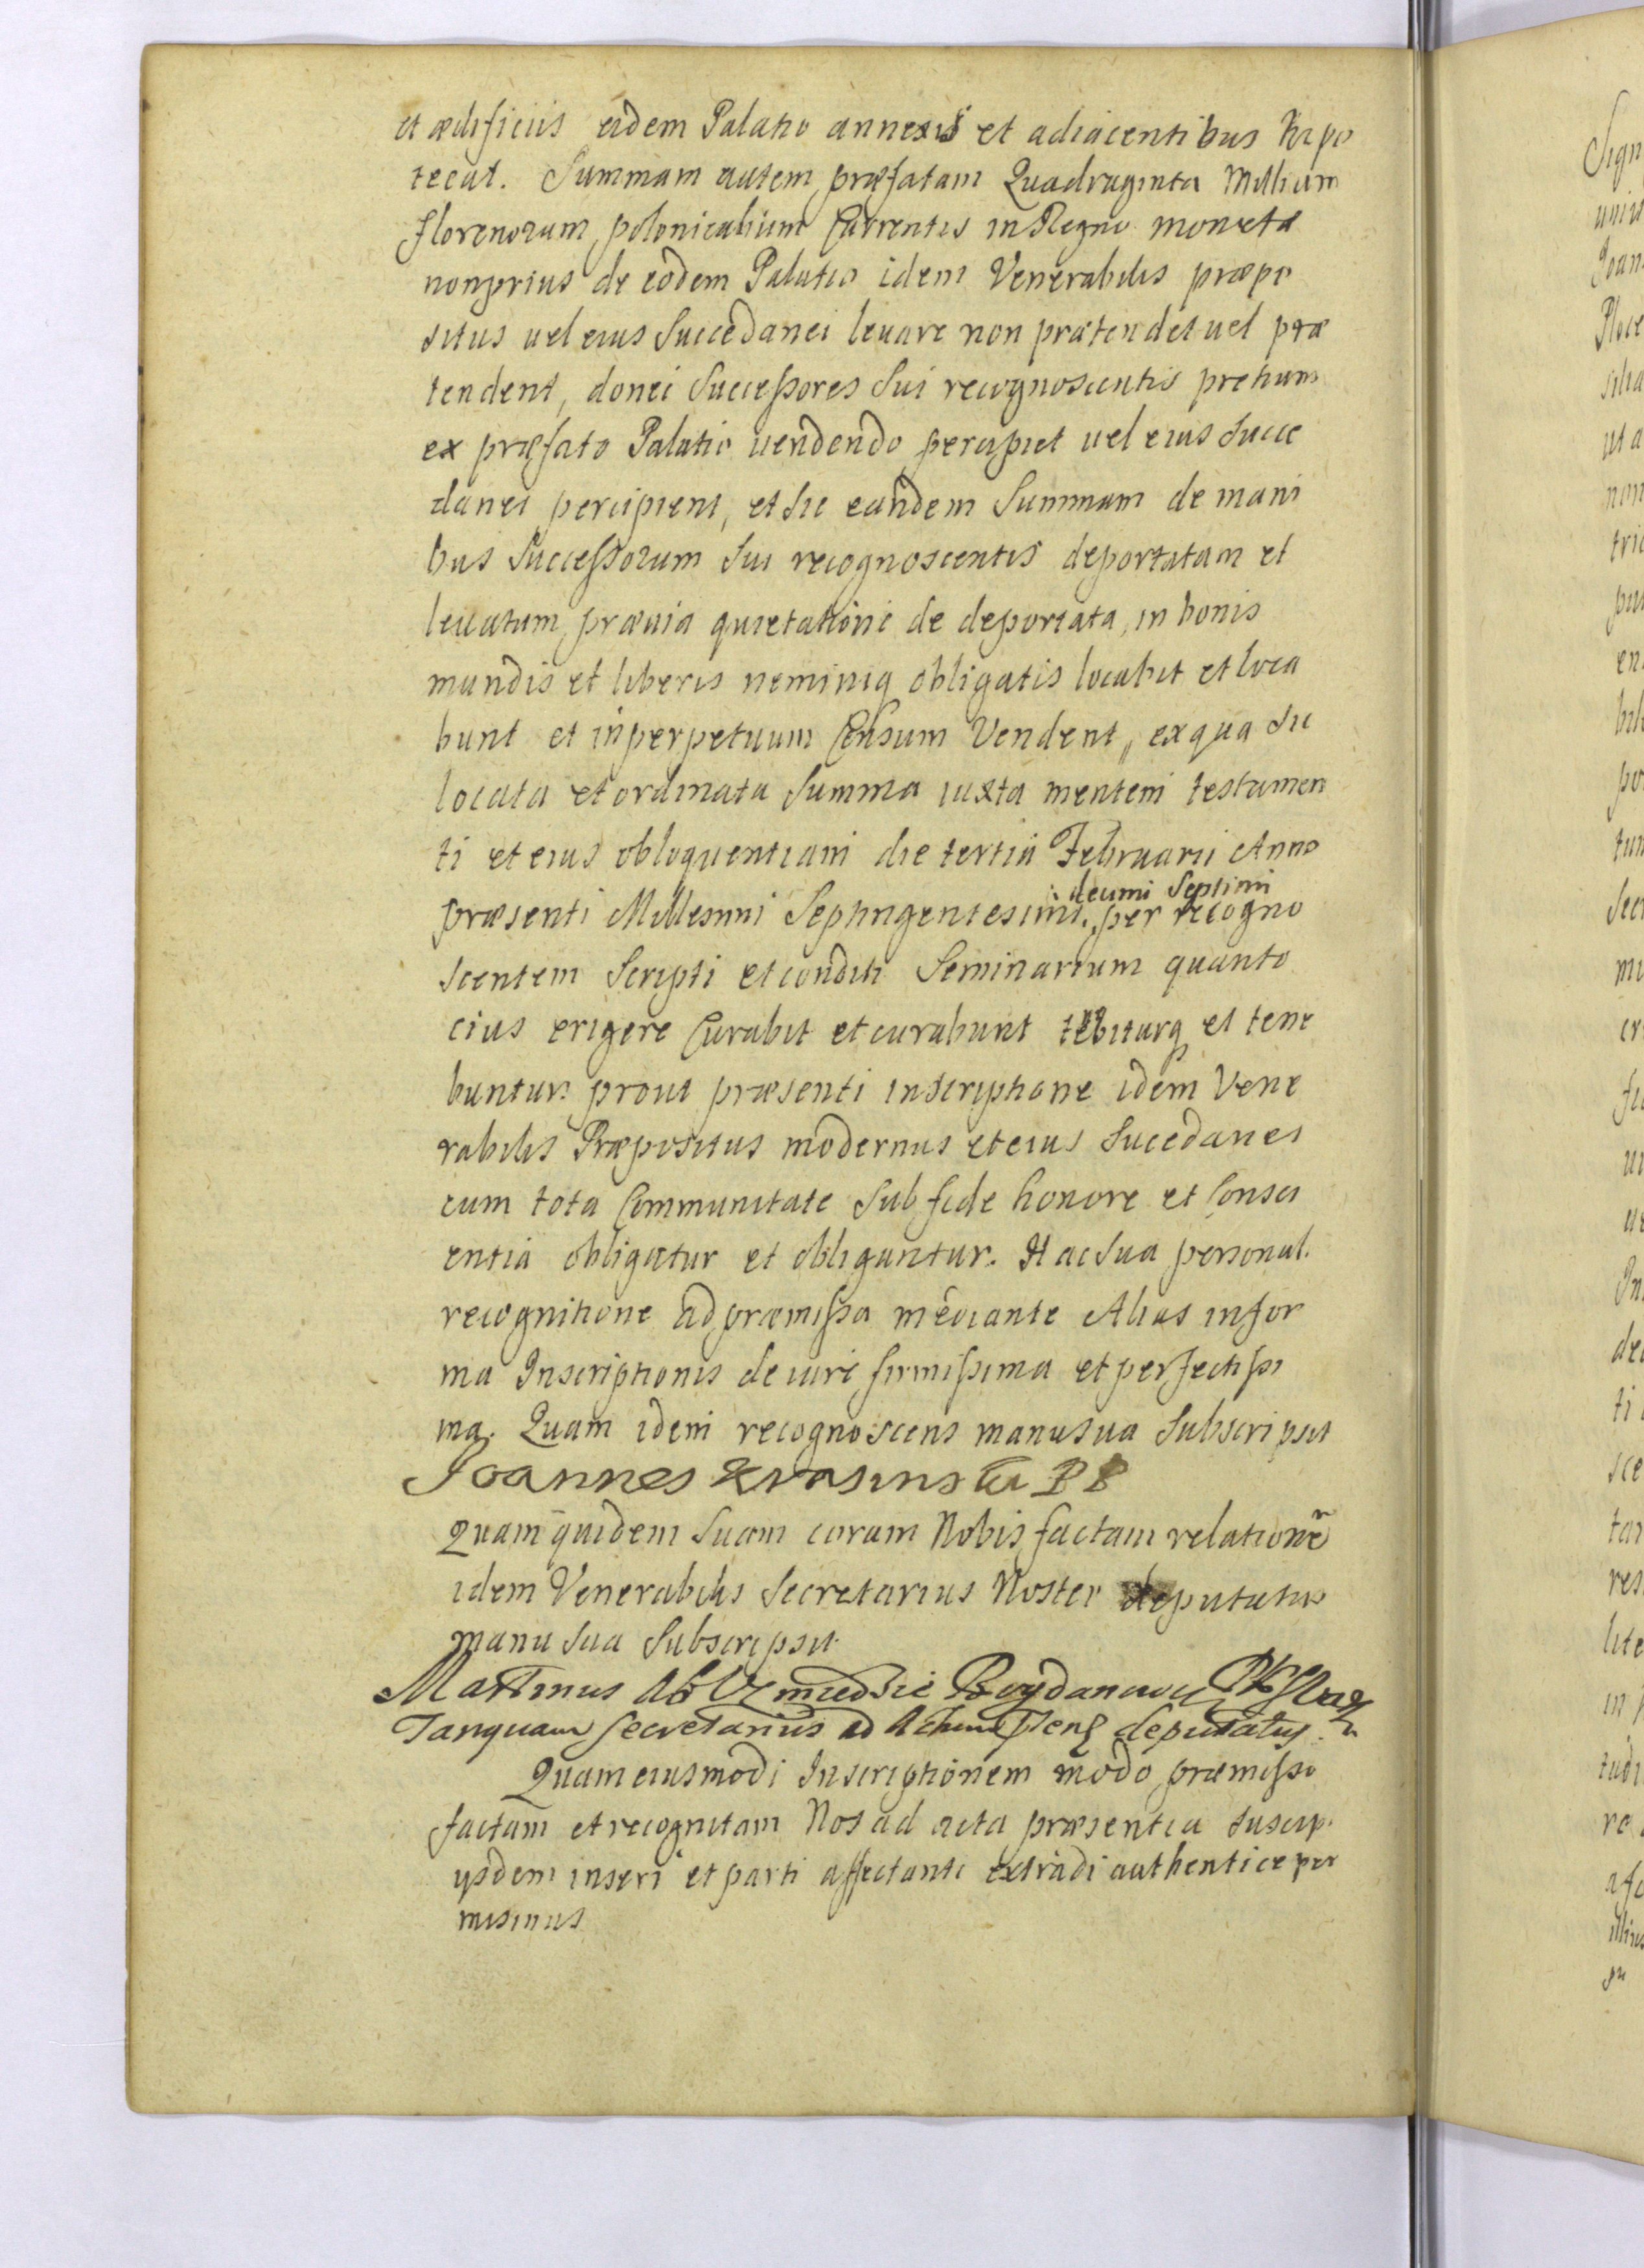 et ædificiis eidem Palatio annexis et adiacentibus Hypo
tecat. Summam autem præfatam Quadraginta Millium
florenorum polonicalium Currentis in Regno moneta
nonprius de eodem Palatio idem Venerabilis præpo
situs vel eius Succedanei levare non prætendet vel præ
tendent, donec Successores Sui recognoscentis pretium
ex præfato Palatio vendendo percipiet vel eius Succe
danei percipient, et sic eandem Summam de mani
bus Successorum Sui recognoscentis deportatam et
levatam, prævia quietatione de deportata, in bonis
mundis et liberis neminiq obligatis locabit et loca
bunt et inperpetuum Censum Vendent, ex qua sic
locata et ordinata Summa iuxta mentem testamen
ti et eius obloquentiam die tertia Februarii Anno
decimi Septimi
præsenti Millesimi Septingentesimi per recogno
scentem Scripti et conditi Seminarium quanto
cius erigere Curabit et curabunt tenebiturq et tene
buntur. prout præsenti inscriptione idem Vene
rabilis Præpositus modernus et eius Sucedanei
cum tota Communitate Sub fide honore et Consci
entia obligatur et obligantur. Hac Sua personal.
recognitione ad præmissa mediante Alias in for
ma Inscriptionis de iure firmissima et perfectissi
ma. Quam idem recognoscens manu sua Subscripsit
Joannes Krasinski
Quam quidem Suam coram Nobis factam relationẽ
idem Venerabilis Secretarius Noster deputatus
manu Sua Subscripsit.
Martinus
Tanquam Secretarius ad Actum deputatus.
Quam eiusmodi Inscriptionem modo præmisso
factam et recognitam Nos ad acta præsentia suscip.
ysdem inseri et parti affectanti extradi authentice per
misimus